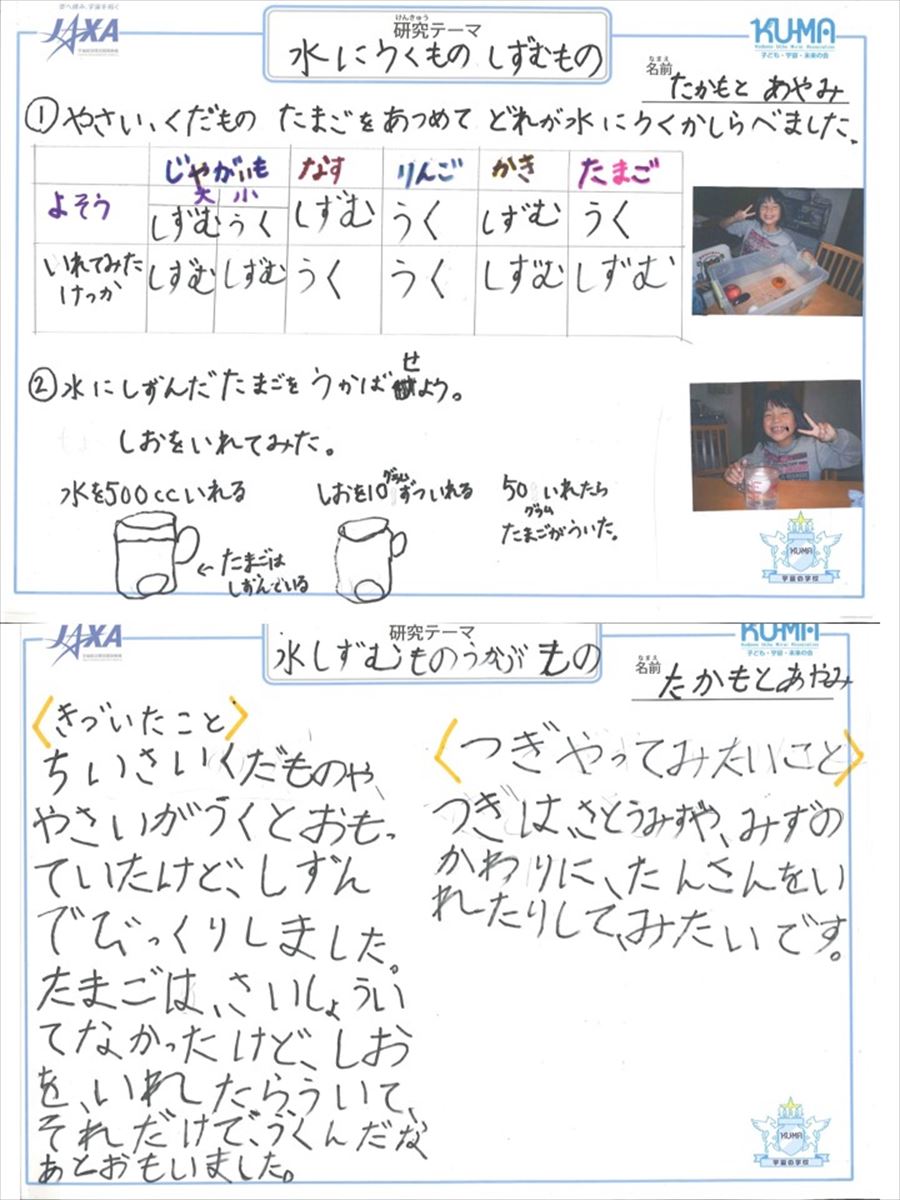 JAXA
研究テーマ
けんきゅう
水にうくもの しずむもの
KUMA
子ども・宇宙・未来の会
名前
なまえ
たかもと あやみ
①やさい、くだもの たまごをあつめて どれが水にうくかしらべました。
じゃがいも なす りんご かき たまご
大 小
よそう しずむ うく しずむ うく しずむ うく
いれてみた けっか しずむ しずむ うく うく しずむ しずむ
②水にしずんだたまごを うかばせよう。
しおをいれてみた。
水を500ccいれる
しおを10グラムずついれる
50グラムいれたら
たまごがういた。
←たまごは
しずんでいる
KUMA
宇宙の学校
JAXA
研究テーマ
水しずむものうかぶもの
KUMA
子ども・宇宙・未来の会
名前
なまえ
たかもとあやみ
〈きづいたこと〉
ちいさいくだものや、
やさいがうくとおもっ
ていたけど、しずん
でびっくりしました。
たまごは、さいしょうい
てなかったけど、しお
を、いれたらういて、
それだけで、うくんだな
あとおもいました。
〈つぎやってみたいこと〉
つぎは、さとうみずや、みずの
かわりに、たんさんをい
れたりして、みたいです。
KUMA
宇宙の学校